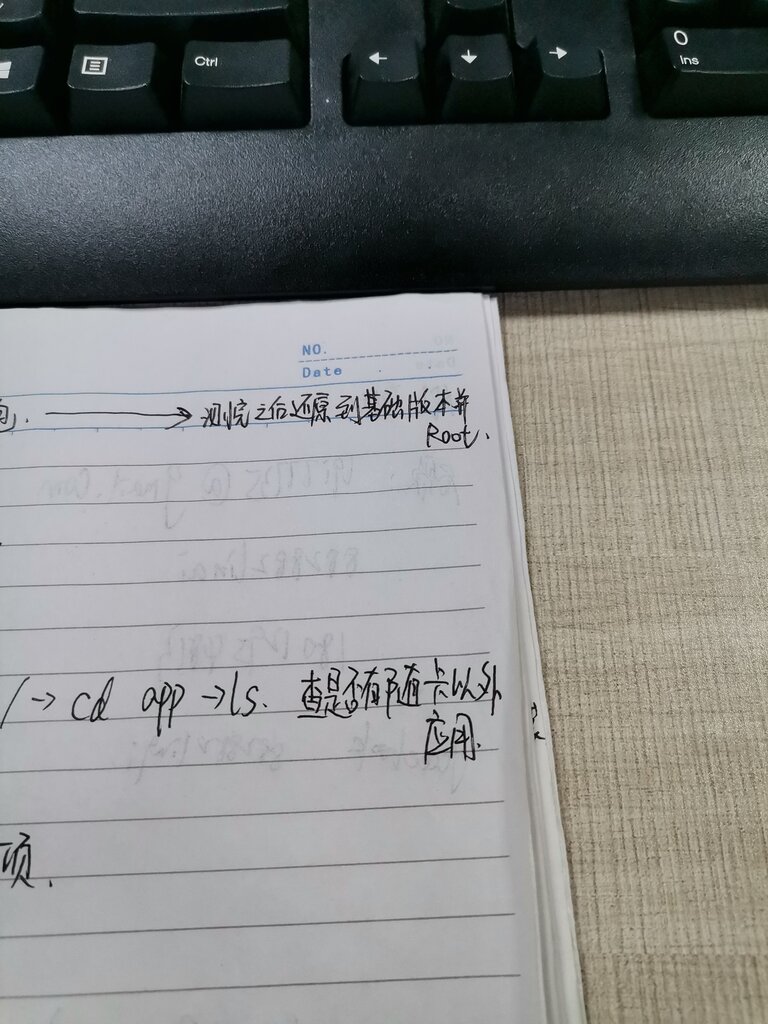 Ctrl
←
↓
→
0
Ins
NO.
Date
→ 测完之后还原到基础版本并
Root.
/→ cd app →ls. 查是否有随卡以外
应用.
项.